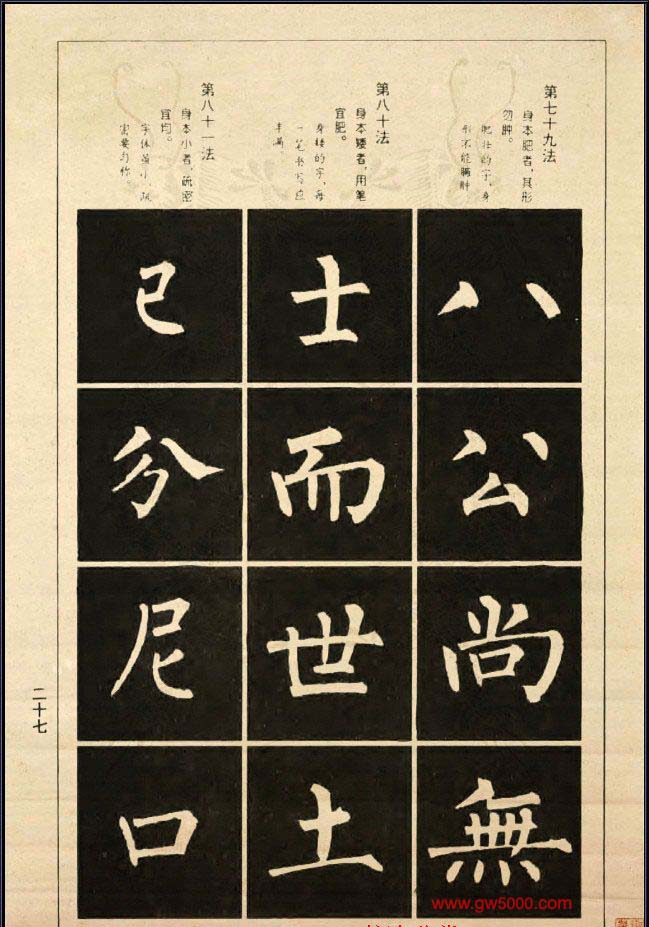 第七十九法
身本肥者，其形
勿肿。
肥壮的字，身
形不能臃肿
八
公
尚
無
第八十法
身本矮者，用笔
宜肥。
身矮的字，每
一笔书写应
丰满
士
而
世
土
第八十一法
身本小者，疏密
宜均。
字体虽小，疏
密要匀称。
已
分
尼
口
二十七
www.gw5000.com